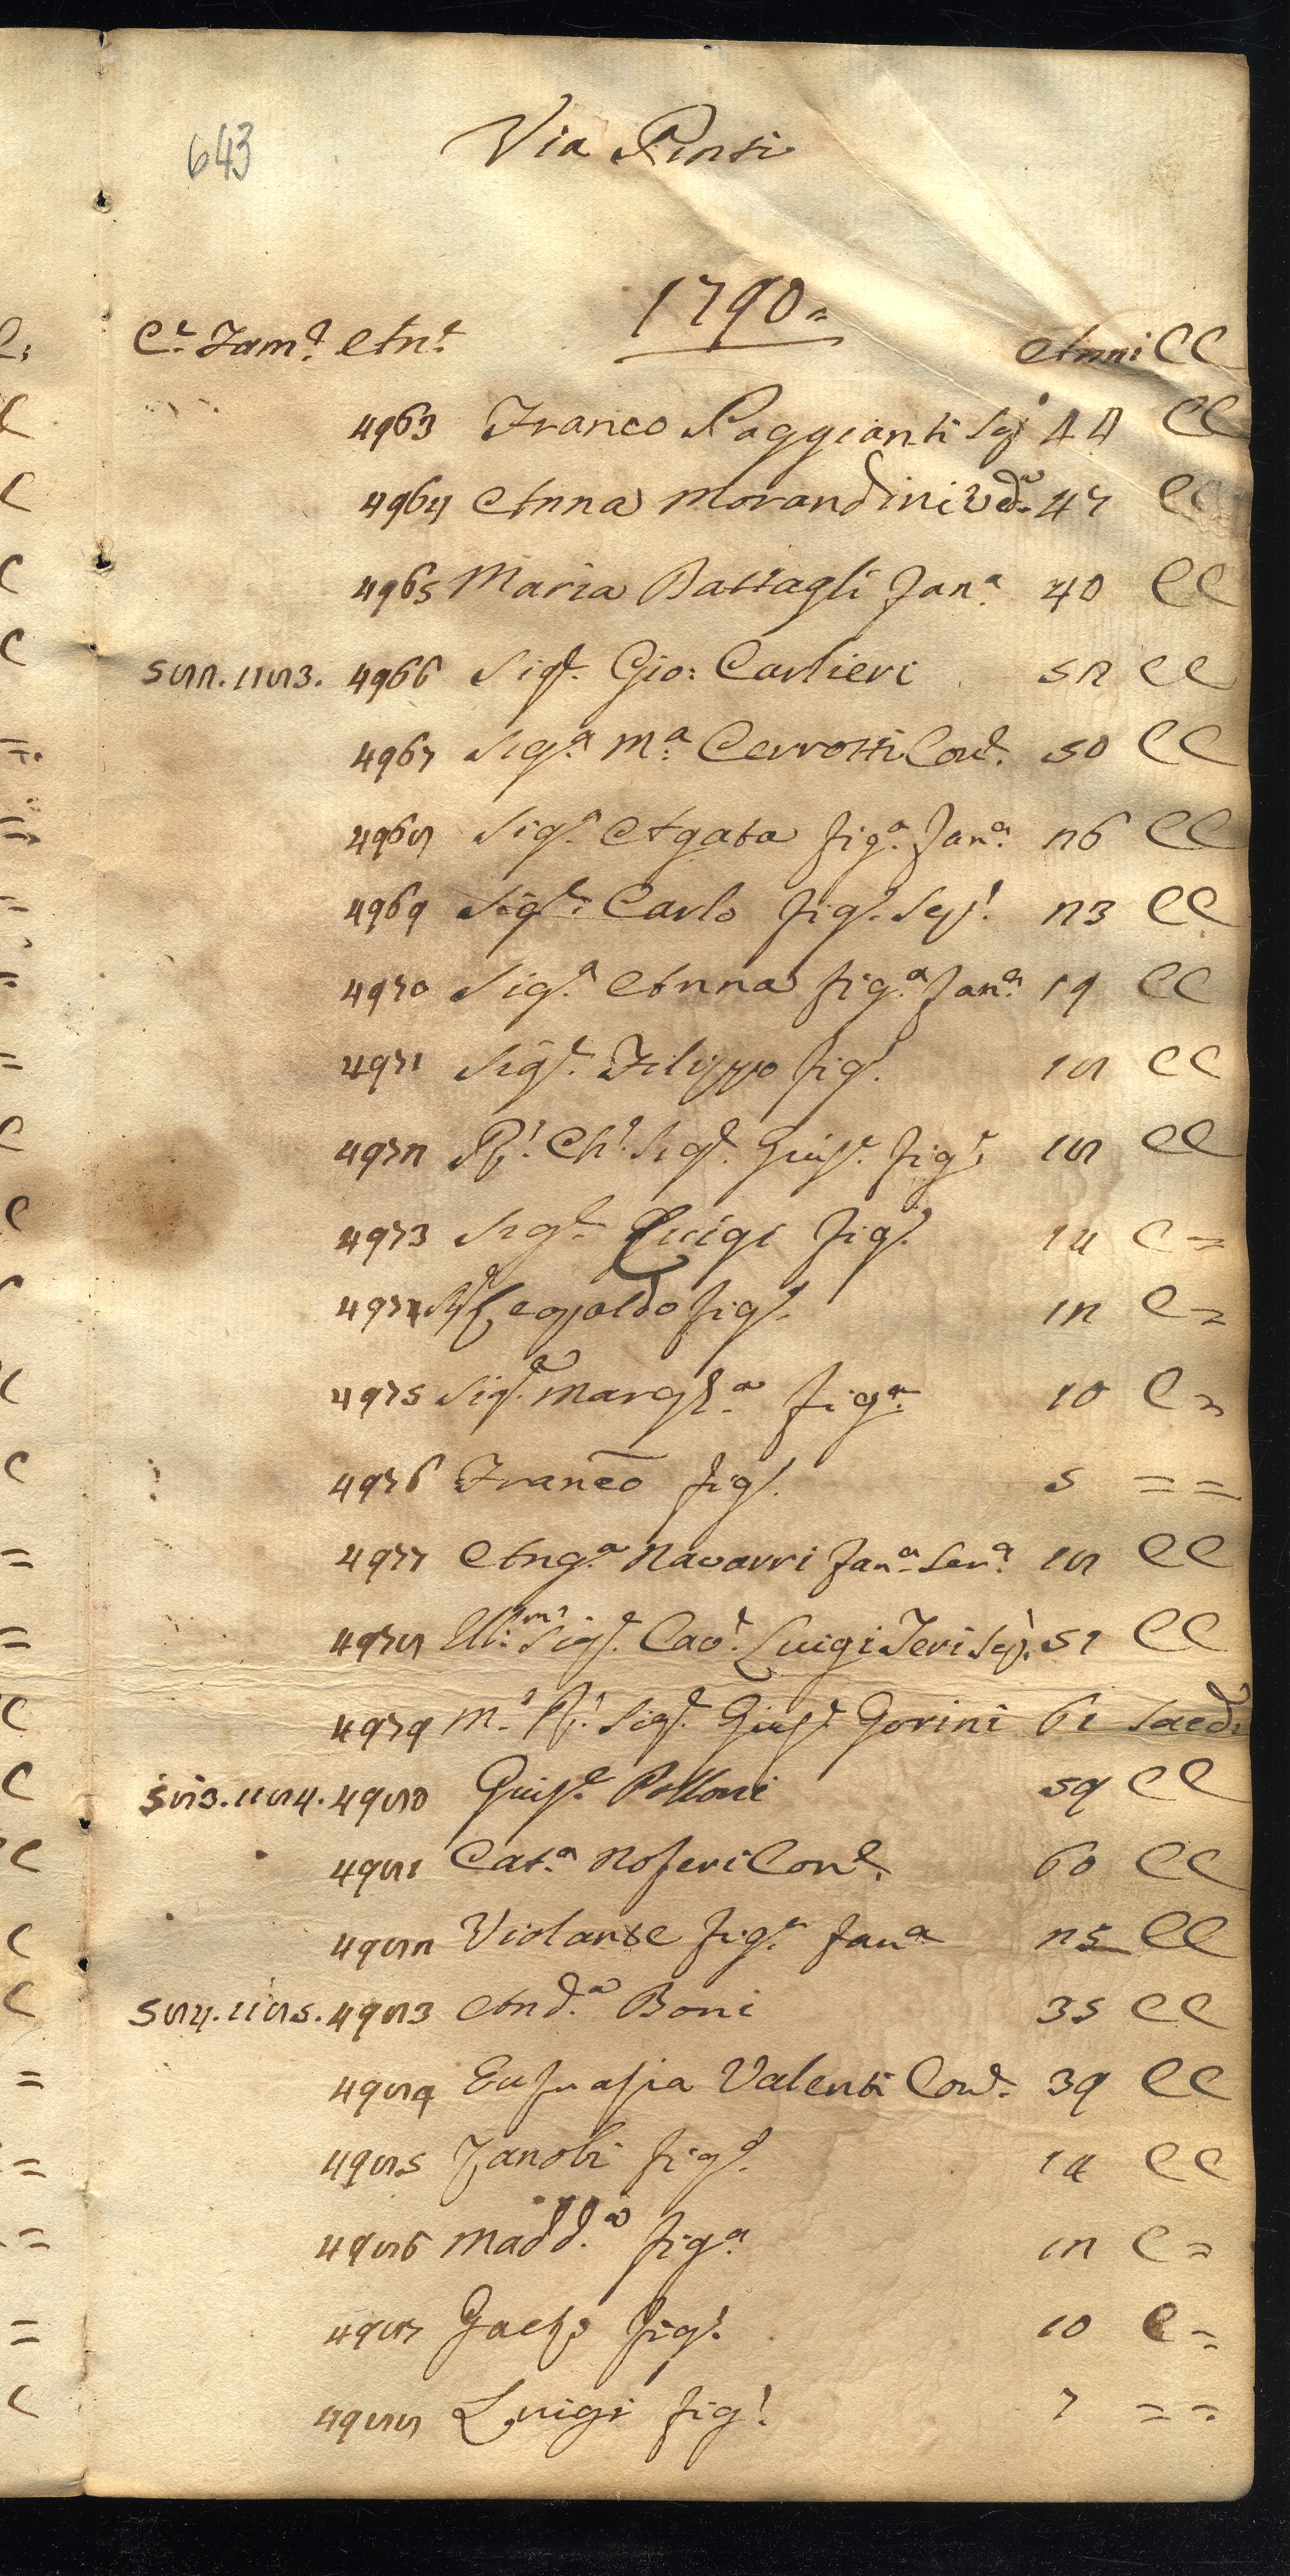 643
Via Pinti
1790.
C.e Fam.e An.e Anni CC
4963 Franco Poggianti Sc.o 44 CC
4964 Anna Morandini Ved.a 47 CC
4965 Maria Battagli Fan.a 40 CC
582. 1183. 4966 Sig.e Gio: Carlieri 52 CC
4967 Sig.a M.a Cerrotti Con.e 50 CC
4968 Sig.a Agata fig.a Fan.a 26 CC
4969 Sig.e Carlo fig.o Sc.o 23 CC
4970 Sig.a Anna fig.a Fan.a 19 CC
4971 Sig.e Filippo fig.o 18 CC
4972 R.o Ch.o Sig.e Giuse.e fig.o 18 CC
4973 Sig.e Luigi fig.o 14 C =
4974 Sig.e Leopoldo fig.o 12 C =
4975 Sig.a Margh.a fig.a 10 C =
4976 Franco fig.o 5 = =
4977 Ang.a Navarri Fan.a Ser.a 18 CC
4978 Ill.mo Sig.e Cav.e Luigi Feri Sc.o 51 CC
4979 M.o R.o Sig.e Giuse.e Gorini 61 Sacd.
583. 1184. 4980 Giuse.e Polloni 59 CC
4981 Cat.a Noferi Con.e 60 CC
4982 Violante fig.a Fan.a 25 CC
584. 1185. 4983 And.a Boni 35 CC
4984 Eufrasia Valenti Con.e 39 CC
4985 Zanobi fig.o 14 CC
4986 Madd.a fig.a 12 C =
4987 Gaeto fig.o 10 C =
4988 Luigi fig.o 7 = =